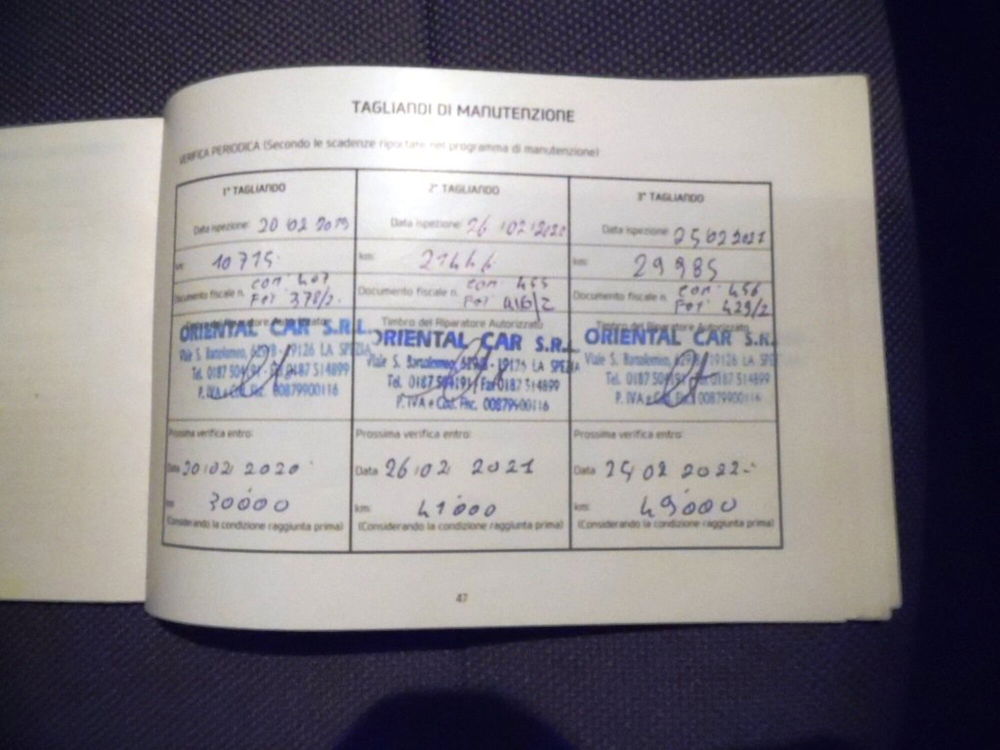 TAGLIANDI DI MANUTENZIONE
VERIFICA PERIODICA (Secondo le scadenze riportate nel programma di manutenzione)
1° TAGLIANDO
Data ispezione: 20 02 2019
km: 10715
con 407
Documento fiscale n. Fat 378/2
Timbro del Riparatore Autorizzato
ORIENTAL CAR S.R.L.
Viale S. Bartolomeo, 629/B - 19126 LA SPEZIA
Tel. 0187 504191 - Fax 0187 514899
P. IVA e Cod. Fisc. 00879900116
Prossima verifica entro:
Data 20 02 2020
km 30000
(Considerando la condizione raggiunta prima)
2° TAGLIANDO
Data ispezione: 26 02 2020
km: 21446
con 455
Documento fiscale n. Fat 416/2
Timbro del Riparatore Autorizzato
ORIENTAL CAR S.R.L.
Viale S. Bartolomeo, 629/B - 19126 LA SPEZIA
Tel. 0187 504191 Fax 0187 514899
P. IVA e Cod. Fisc. 00879900116
Prossima verifica entro:
Data 26 02 2021
km: 41000
(Considerando la condizione raggiunta prima)
3° TAGLIANDO
Data ispezione: 25 02 2021
km: 29985
con 456
Documento fiscale n. Fat 429/2
Timbro del Riparatore Autorizzato
ORIENTAL CAR S.R.
Viale S. Bartolomeo, 629/B 19126 LA SPE
Tel. 0187 504191 Fax 0187 514899
P. IVA e Cod. Fisc. 00879900116
Prossima verifica entro:
Data 25 02 2022
km: 49000
(Considerando la condizione raggiunta prima)
47